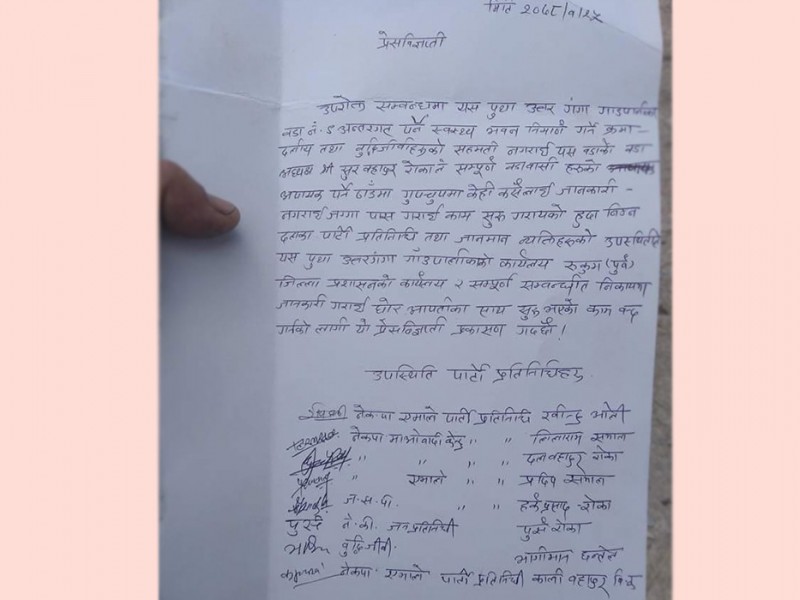 मिति २०७८/१/२५
प्रेसविज्ञप्ती
उपरोक्त सम्बन्धमा यस पुथा उत्तर गंगा गाउपालिका
वडा नं. ८ अन्तरगत पर्ने स्वास्थ्य भवन निर्माण गर्ने क्रमा-
दलीय तथा बुद्धिजिविहरुको सहमती नगराई यस वडाका वडा
अध्यक्ष श्री सुर बहादुर रोकाले सम्पूर्ण वडावासी हरुको
अपायक पर्ने ठाउँमा गुपचुपमा केही कसैलाई जानकारी -
नगराई जग्गा पास गराई काम सुरु गरायको हुदा निम्न
दलका पार्टी प्रतिनिधि तथा जानमान व्यक्तिहरुको उपस्थितीमा
यस पुथा उत्तरगंगा गाँउपालिकाको कार्यलय रुकुम (पुर्व)
जिल्ला प्रशासनको कार्यलय र सम्पूर्ण सम्बन्धीत निकायमा
जानकारी गराई घोर आपत्तीका साथ सुरु भएको काम बन्द
गर्नको लागी यो प्रेसविज्ञप्ती प्रकासण गर्दछौ।
उपस्थिति पार्टी प्रतिनिधिहरु
नेकपा एमाले पार्टी प्रतिनिधि रविन्द्र ओली
नेकपा माओवादी केन्द्र " " लिलाराम
" " " दलबहादुर रोका
" एमाले " प्रदिप
ज.स.पा. " " हर्कप्रसाद रोका
पुर्स ने.का. जनप्रतिनिधी पुर्स रोका
बुद्धिजीवी
नेकपा एमाले पार्टी प्रतिनिधी काली बहादुर